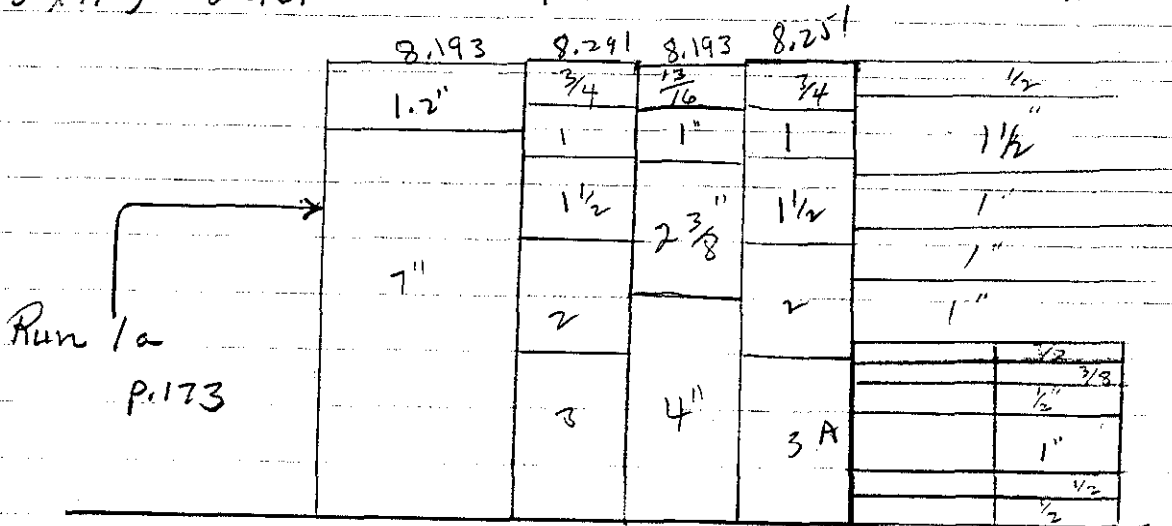 8.193 8.291 8.193 8.251
1.2" 3/4 13/16 3/4 1/2
1 1" 1 1 1/2"
1 1/2 2 3/8" 1 1/2 1"
7" 1"
Run 1a 2 2 1"
p.173 1/2
3/8
1/2"
3 4" 3 A 1"
1/2
1/2